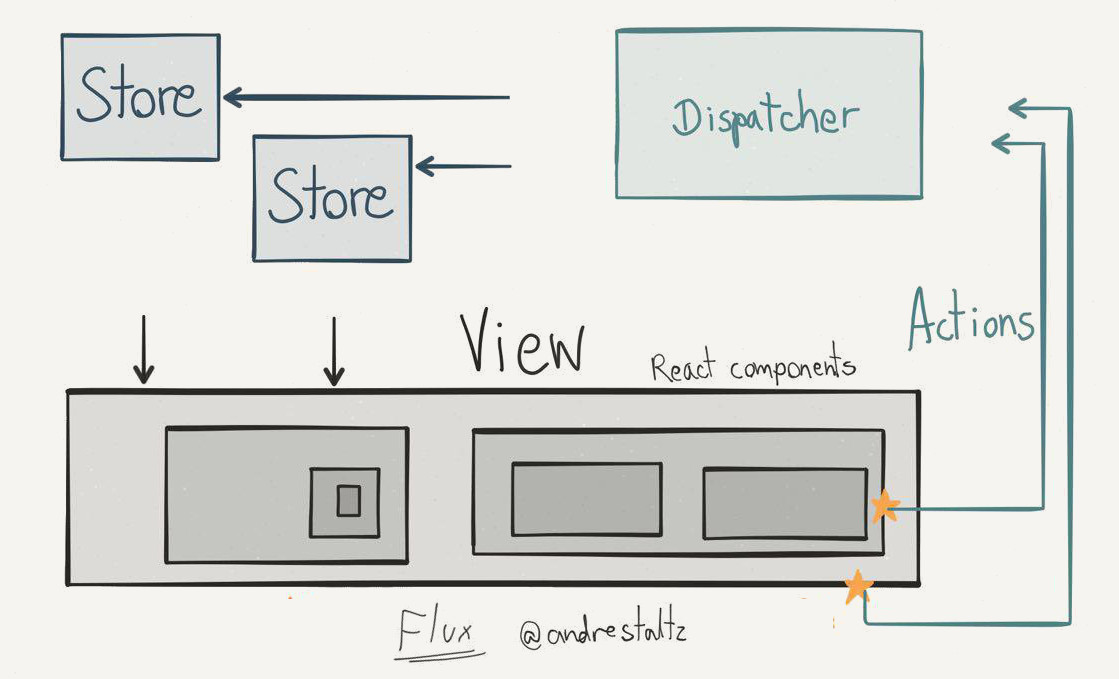 Store
Dispatcher
Store
Actions
View
React components
Flux
@andrestaltz